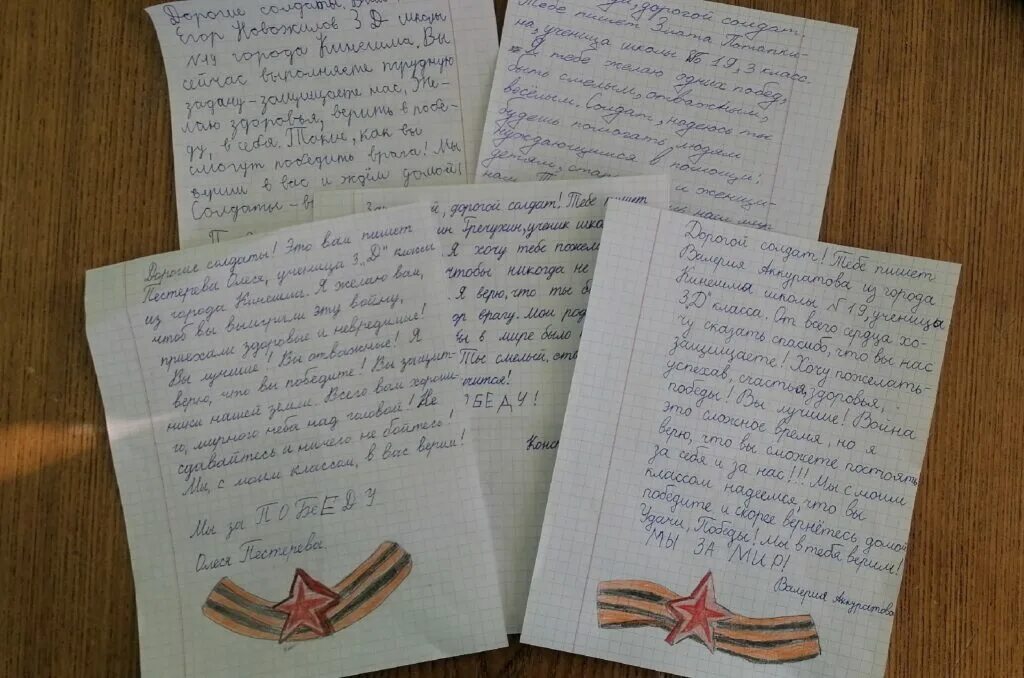 Дорогие солдаты!
Егор Новожилов 3 Д школы
N19 города Кинешма. Вы
сейчас выполняете трудную
задачу - защищаете нас. Же-
лаю здоровья, верить в побе-
ду, в себя. Такие, как вы
смогут победить врага! Мы
верим в вас и ждём домой!
Солдаты -
дорогой солдат
Тебе пишет Злата Потапки-
на, ученица школы № 19, 3 класс
Я тебе желаю одних побед,
быть смелым, отважным,
весёлым. Солдат, надеюсь ты
будешь помогать людям
нуждающимся в помощи:
детям, и женщи-
нам.
Дорогие солдаты! Это вам пишет
Пестерева Олеся, ученица 3 „Д" класса
из города Кинешма. Я желаю вам,
чтоб вы выиграли эту войну,
приехали здоровые и невредимые!
Вы лучшие! Вы отважные! Я
верю, что вы победите! Вы защит-
ники нашей земли. Всего вам хороше-
го, мирного неба над головой! Не
сдавайтесь и ничего не бойтесь!
Мы, с моим классом, в вас верим!
Мы за ПОБЕДУ
Олеся Пестерева.
й, дорогой солдат! Тебе пишет
ин Гречухин, ученик шко
Я хочу тебе пожела
чтобы никогда не
Я верю, что ты б
врагу. Мои род
ы в мире было
Ты смелый,
ОБЕДУ!
Конс
Дорогой солдат! Тебе пишет
Валерия Аккуратова из города
Кинешма школы №19, ученица
3„Д" класса. От всего сердца хо-
чу сказать спасибо, что вы нас
защищаете! Хочу пожелать-
успехав, счастья, здоровья,
победы! Вы лучшие! Война
это сложное время, но я
верю, что вы сможете постоять
за себя и за нас!!! Мы с моим
классом надеемся, что вы
победите и скорее вернётесь домой
Удачи, Победы! Мы в тебя верим!
МЫ ЗА МИР!
Валерия Аккуратова